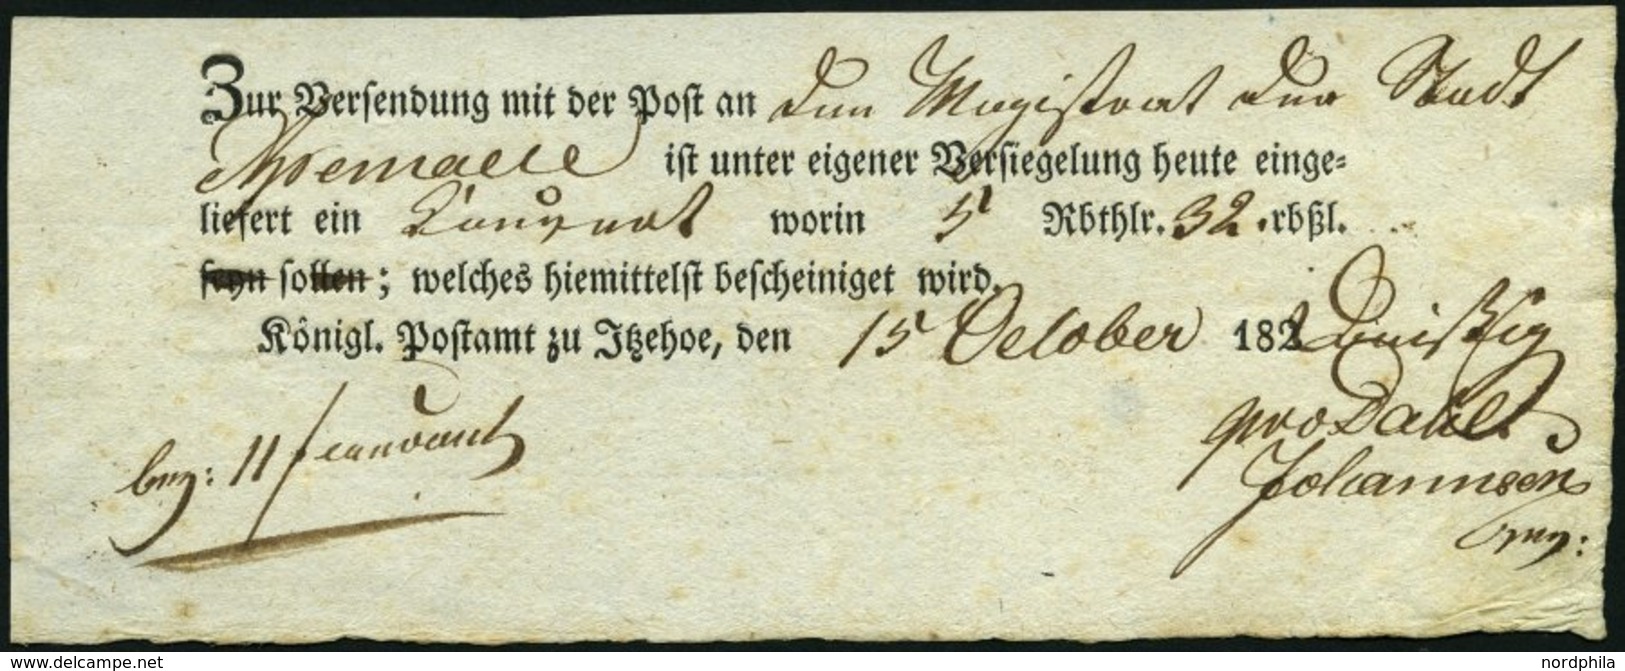 Zur Verſendung mit der Poſt an den Magistrat der Stadt
iſt unter eigener Verſiegelung heute einge⸗
liefert ein Couvert worin 5 Rbthlr. 32 rbßl.
ſeyn ſollen; welches hiemittelſt beſcheiniget wird.
Königl. Poſtamt zu Itzehoe, den 15 October 182
bez: 11
pro
Johannsen
www.delcampe.net
nordphila